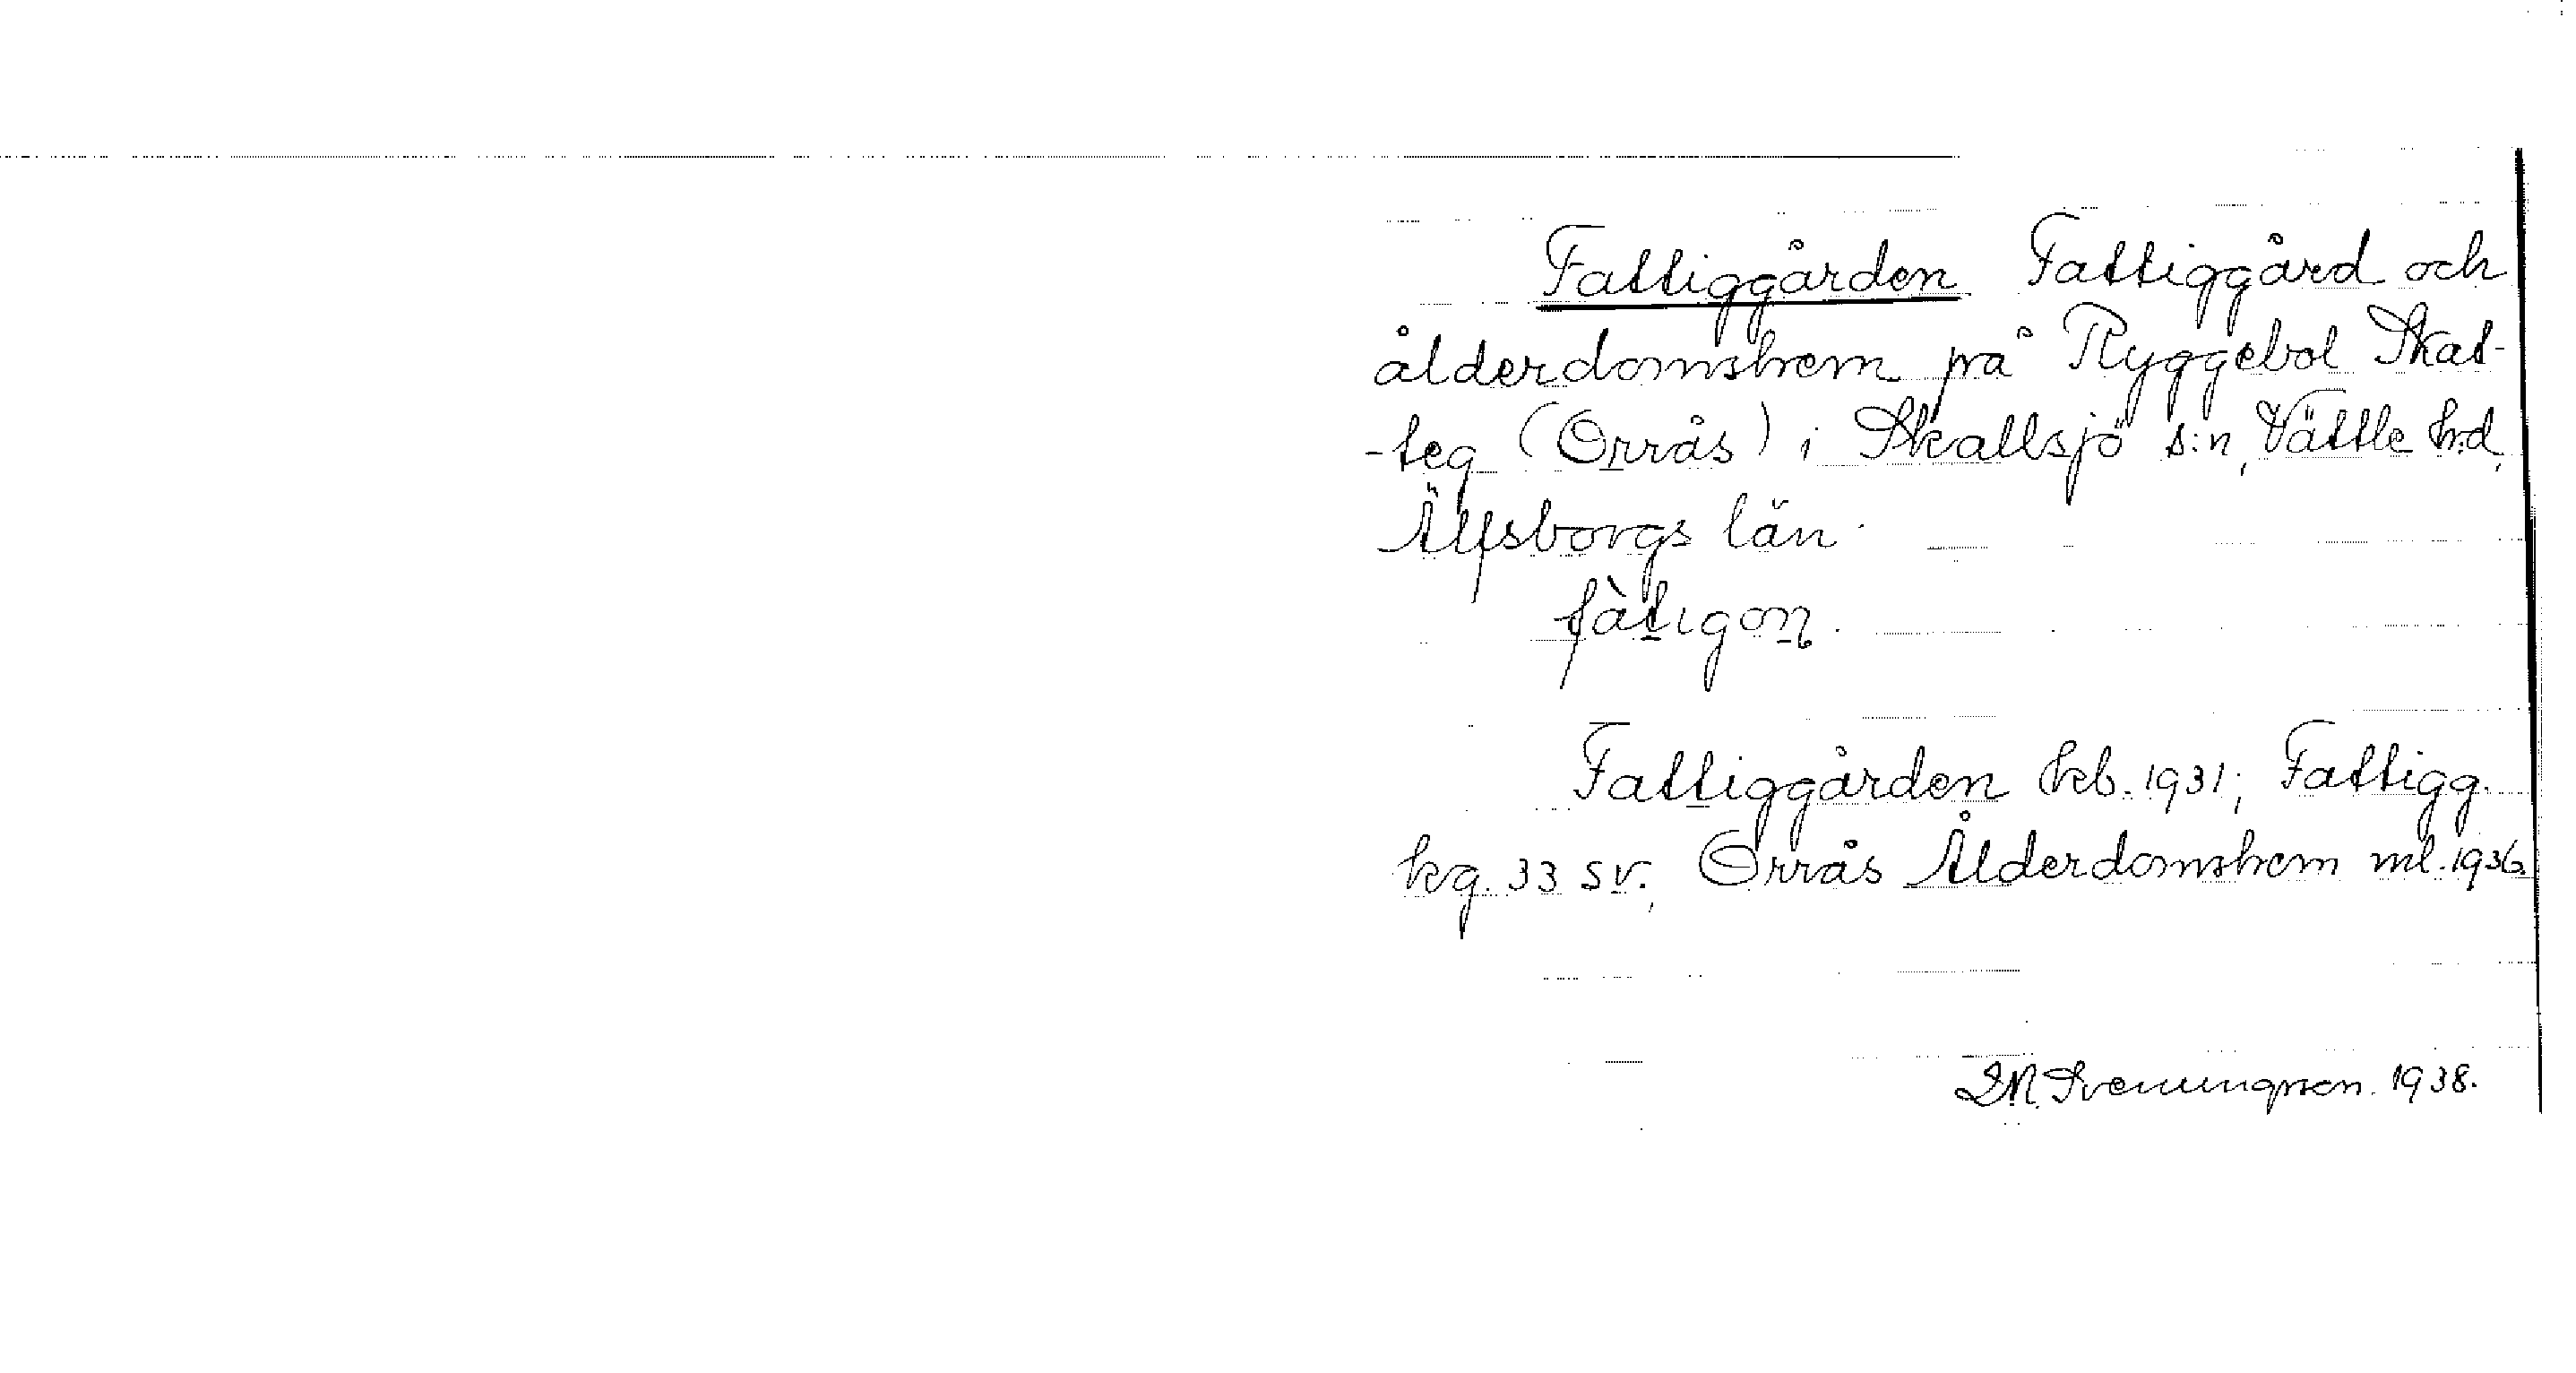 Fattiggården Fattiggård och
ålderdomshem på Ryggebol Skat-
-teg (Orrås) i Skallsjö s:n, Vättle h:d,
Älfsborgs län.
fàtıgon.
Fattiggården kb. 1931; Fattigg.
kg. 33 SV.; Orrås Ålderdomshem ml. 1936.
Svenningson. 1938.